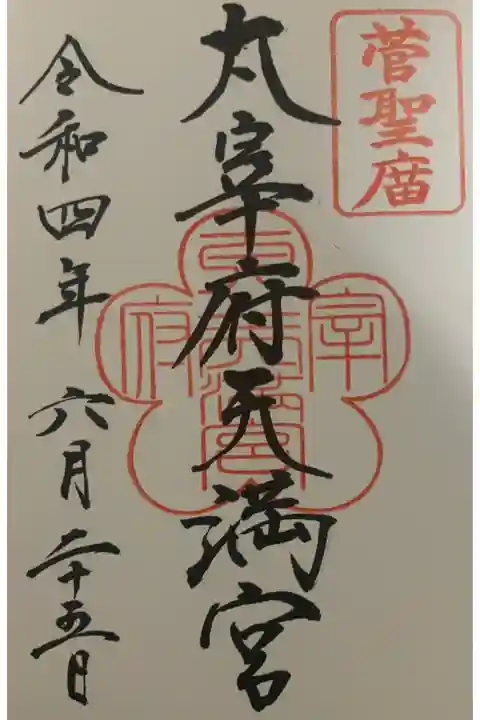 菅聖庿
太宰府天満宮
令和四年 六月 二十五日